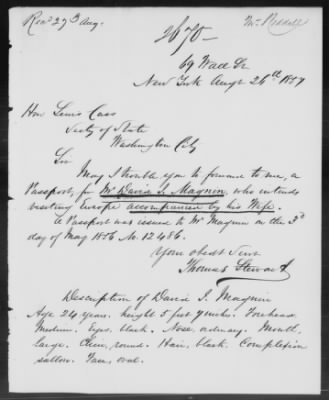 Recd 27th Aug.
Mr. Russell
2670
69 Wall St
New York Augt 26th 1857
Hon Lewis Cass
Secty of State
Washington City
Sir
May I trouble you to forward to me, a
Passport, for Mr David I. Magnin, who intends
visiting Europe accompanied by his Wife.
A Passport was issued to Mr Magnin on the 3d
day of May 1856 No. 12486.
Your obedt Servt
Thomas Stewart
Description of David I. Magnin
Age 24 years. height 5 feet 7 inches. Forehead
Medium. Eyes. black. Nose, ordinary. Mouth,
large. Chin, round. Hair, black. Complexion
sallow. Face, oval.